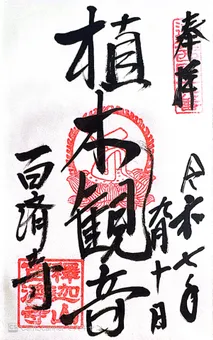 奉拝
令和七年
六月十日
植木観音
百済寺
釋迦山
百済寺